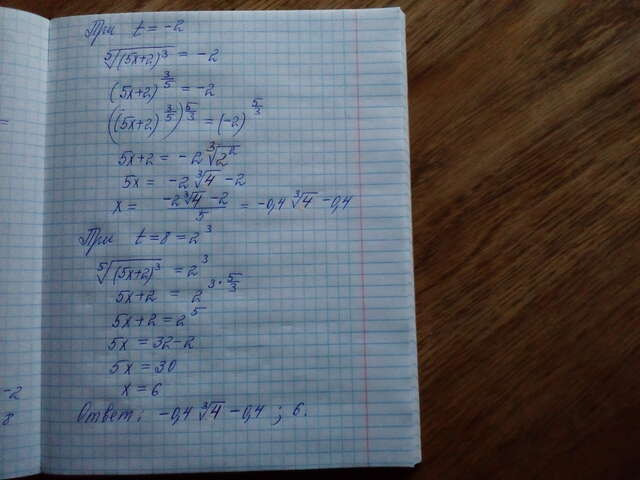 =
-2
8
При t = -2
⁵√(5x+2)³ = -2
(5x+2)^(3/5) = -2
((5x+2)^(3/5))^(5/3) = (-2)^(5/3)
5x+2 = -2 ³√2²
5x = -2 ³√4 -2
x = (-2³√4 -2)/5 = -0,4 ³√4 -0,4
При t = 8 = 2³
⁵√(5x+2)³ = 2³
5x+2 = 2^(3·5/3)
5x+2 = 2⁵
5x = 32-2
5x = 30
x = 6
Ответ: -0,4 ³√4 -0,4 ; 6.